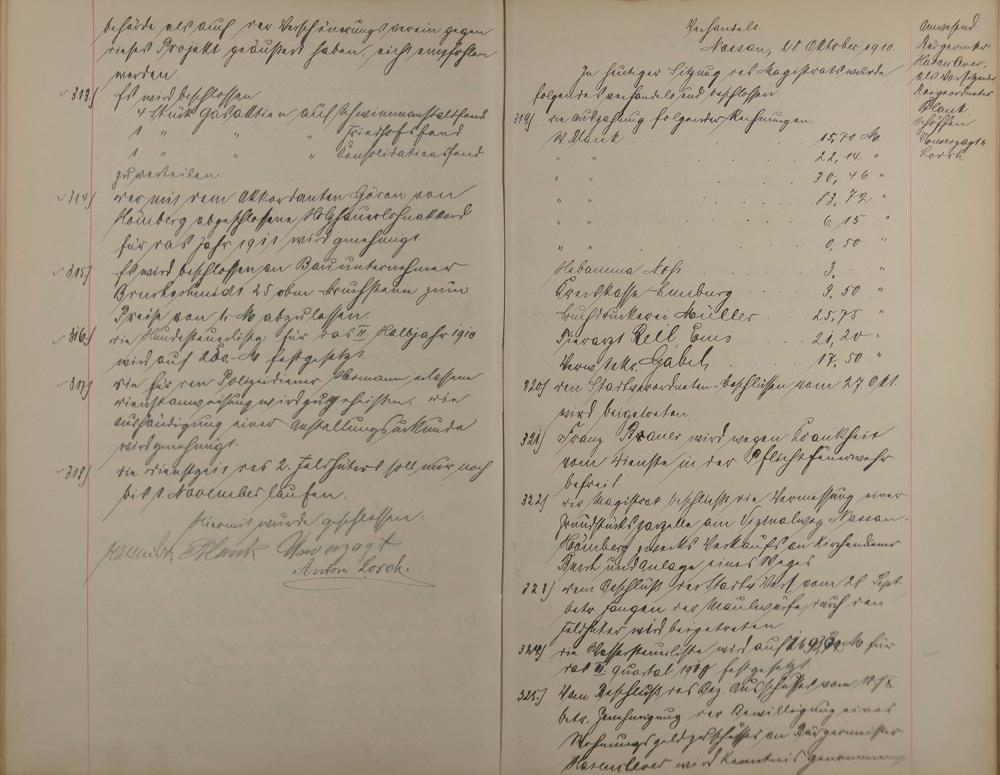 behörde als auch der Verschönerungsverein gegen
dieses Projekt geäußert haben, nicht empfohlen
werden.
313) Es wird beschlossen
4 Stück Gasaktien auf Schwimmanstaltfond
1 " " " Friedhofsfond
1 " " " Consolidationsfond
zu verteilen
314) der mit dem Akkordanten Göran von
Hömberg abgeschlossene Holzhauerlohnakkord
für das Jahr 1911 wird genehmigt
315) Es wird beschlossen an Bauunternehmer
25 cbm Bruchsteine zum
Preise von M abzulassen.
316) die Hundesteuerliste für das II Halbjahr 1910
wird auf 280,- M festgesetzt
317) die für den Polizeidiener Hermann erlassene
Dienstanweisung wird gutgeheißen. die
Aushändigung einer Anstellungsurkunde
wird genehmigt.
318) die Dienstzeit des 2. Feldhüters soll nur noch
bis 1 November laufen.
Hiermit wurde geschlossen:
Hasenclever Plank Unverzagt
Anton Lorch.
Verhandelt
Nassau, 28 Oktober 1910.
In heutiger Sitzung des Magistrats wurde
folgendes verhandelt und beschlossen.
319) die Auszahlung folgender Rechnungen.
W Plank 15,70 M
" " 22,14 "
" " 30,46 "
" " 13,72 "
" " 6,15 "
" " 0,50 "
Hebamme 3,- "
Kreiskasse Limburg 3,50 "
Buchdruckerei Müller 25,75 "
Tierarzt Reil, Ems 21,20 "
Gabel 17,50 "
320) den Stadtverordneten-Beschlüssen vom 27 Okt.
wird beigetreten.
321) Franz wird wegen Krankheit
vom Dienste in der Pflichtfeuerwehr
befreit
322) der Magistrat beschließt die Vermessung einer
Grundstücksparzelle am Vizinalweg Nassau-
Hömberg zwecks Verkaufs an Kirchendiener
und Anlage eines Weges
323) dem Beschluß der Stadtv Vers. vom 28. Sept.
betr. Fangen der Maulwürfe durch den
Feldhüter wird beigetreten.
324) die Wassersteuerliste wird auf M für
das III Quartal festgesetzt.
325) Vom Beschluß des Bez. Ausschusses vom
betr. Genehmigung der Bewilligung eines
Wohnungsgeldzuschusses an Bürgermeister
Hasenclever wird Kenntnis genommen
Anwesend
Bürgermstr
Hasenclever,
als Vorsitzender
Beigeordneter
Plank
Schöffen
Unverzagt u
Lorch